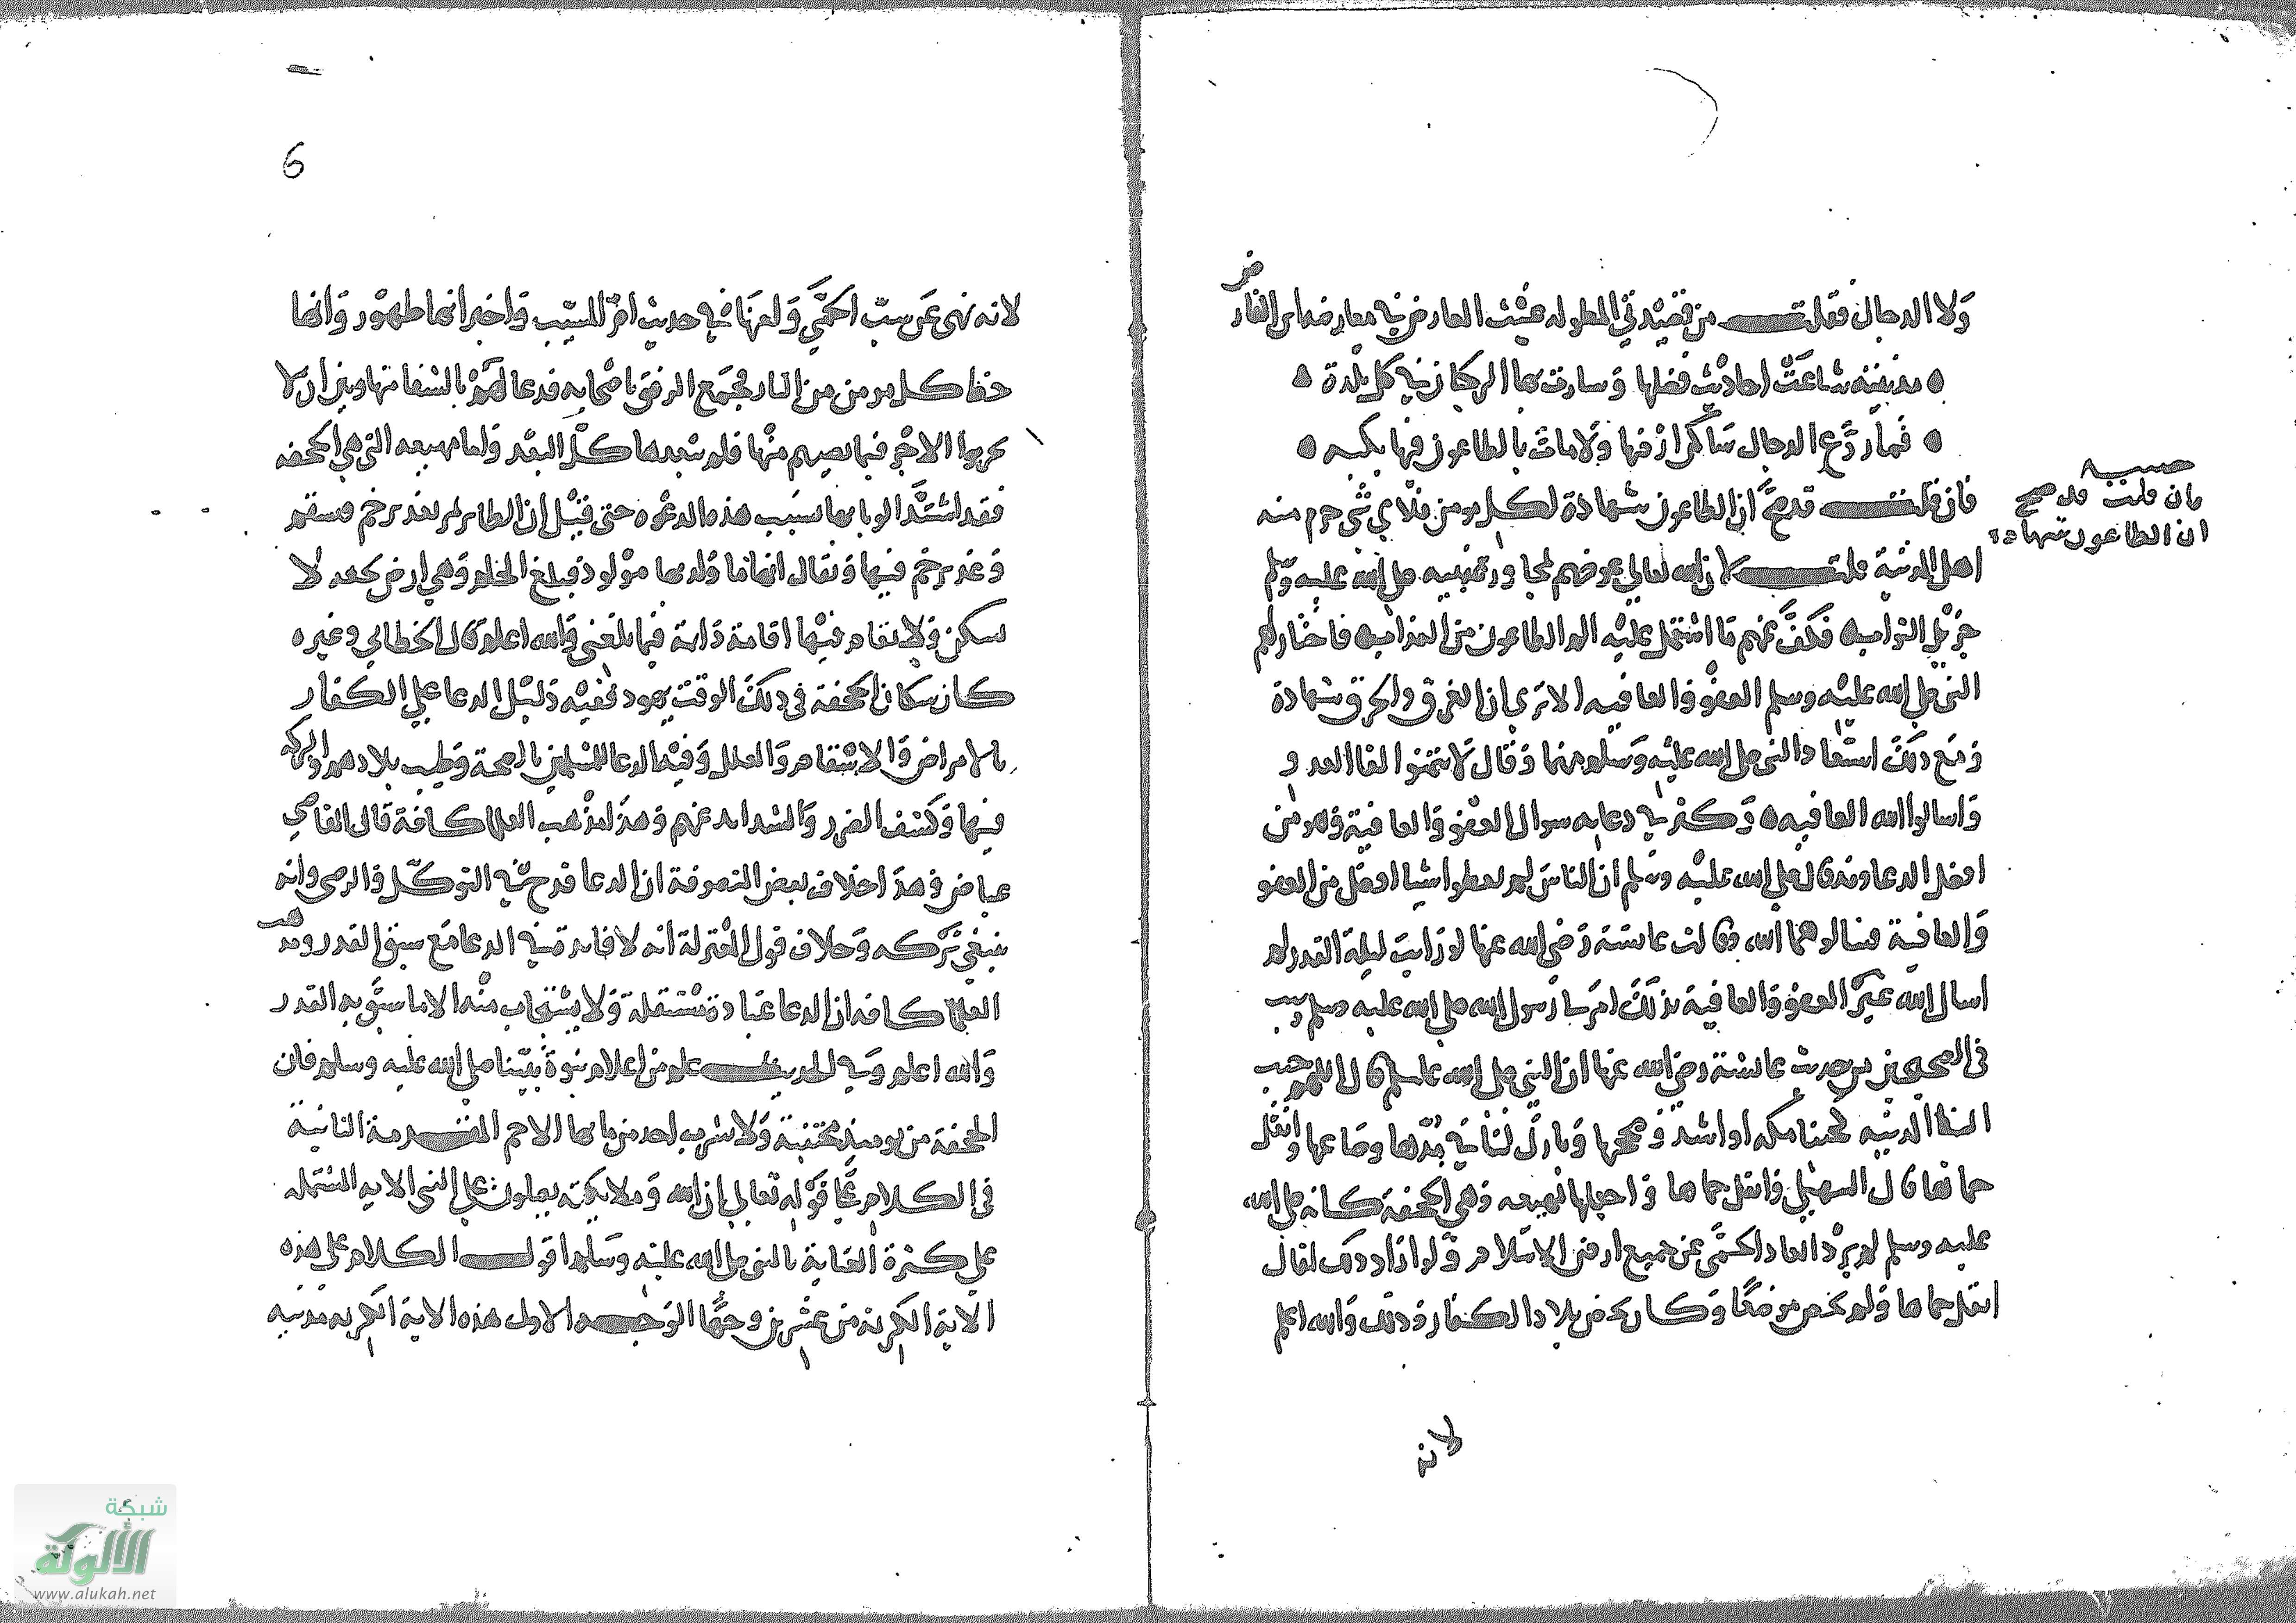 ولا الدجال فقلت من قصيدتي المطوله
مدينته شاعت احاديث فضلها وسارت بها الركبان في كل بلدة
فما روع الدجال ساكن ارضها ولا مات بالطاعون فيها
فان قلت قد صح ان الطاعون شهادة لكل مومن فلاي شي حرم منه
فان قلت قد صح
ان الطاعون شهادة
اهل المدينة قلت لان الله تعالى عوضهم لمجاورة نبيه صلى الله عليه وسلم
جزيل الثواب فكف عنهم ما اشتمل عليه الم الطاعون من العذاب فاختار لهم
النبي صلى الله عليه وسلم العفو والعافيه الا ترى ان الغرق والحرق شهادة
ومع ذلك استعاذ النبي صلى الله عليه وسلم منهما وقال لا تتمنوا لقا العدو
واسالوا الله العافيه وكثر في دعايه سوال العفو والعافية وهو من
افضل الدعا وقد قال صلى الله عليه وسلم ان الناس لم يعطوا شيا افضل من العفو
والعافية فسالوهما الله وقالت عايشة رضي الله عنها لو رايت ليلة القدر لم
اسال الله غير العفو والعافية بذلك امرنا رسول الله صلى الله عليه وسلم
في الصحيحين من حديث عائشة رضي الله عنها ان النبي صلى الله عليه وسلم قال اللهم حبب
الينا المدينه كحبنا مكه او اشد وصححها وبارك لنا في مدها وصاعها وانقل
حماها قال السهيلي وانقل حماها واجعلها بمهيعه وهي الجحفة كانه صلى الله
عليه وسلم لم يرد ابعاد الحمى عن جميع ارض الاسلام ولو اراد ذلك لقال
انقل حماها ولم يخص موضعا وكان يخص بلاد الكفار وذلك والله اعلم
لانه
6
لانه نهى عن سب الحمى ولعنها في حديث ام المسيب واخبر انها طهور وانها
حظ كل مومن من النار فجمع الرفق باصحابه فدعا لهم بالشفا منها وبين ان لا
يحرموا الاجر فيما يصيبهم منها فلم يبعدها كل البعد واما مهيعه التي هي الجحفه
فقد اشتد الوبا بها بسبب هذه الدعوه حتى قيل ان الطاير لمر بغدير خم فسقم
وغدير خم فيها ويقال انها ما ولد بها مولود فبلغ الحلم وهي ارض لا
تسكن ولا يقام فيها اقامة دائمة فيما بلغني والله اعلم قال الخطابي وغيره
كان سكان الجحفة في ذلك الوقت يهود ففيه دليل الدعا على الكفار
بالامراض والاسقام والعلل وفيه الدعا للمسلمين بالصحة وطيب بلادهم والبركه
فيها وكشف الضرر والشدايد عنهم وهذا مذهب العلما كافة قال القاضي
عياض وهذا خلاف بعض المتصوفة ان الدعا قدح في التوكل والرضى وانه
ينبغي تركه وخلاف قول المعتزلة انه لا فائدة في الدعا مع سبق القدر ومذهب
العلما كافه ان الدعا عبادة مستقلة ولا يستجاب منه الا ما سبق به القدر
والله اعلم وفي الحديث علم من اعلام نبوة نبينا صلى الله عليه وسلم فان
الجحفة من يوميذ مجتنبة ولا يشرب احد من مايها الا حم المقدمة الثانية
في الكلام على قوله تعالى ان الله وملايكته يصلون على النبي الايه المشتمله
على كثرة العناية بالنبي صلى الله عليه وسلم اقول الكلام على هذه
الاية الكريمة من عشرين وجها الوجه الاول هذه الاية الكريمه مدنيه
شبكة
الألوكة
www.alukah.net